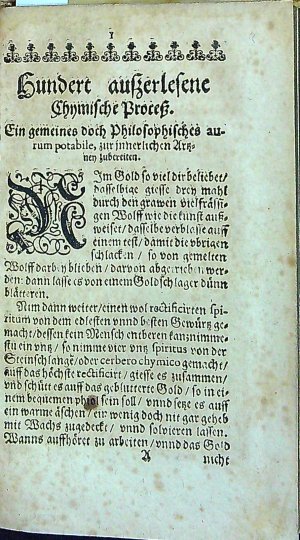 1
Hundert außerlesene
Chymische Proceß.
Ein gemeines doch Philosophisches au-
rum potabile, zur innerlichen Artz-
ney zubereiten.
NIm Gold so viel dir beliebet/
dasselbige giesse drey mahl
durch den grawen vielfräsi-
gen Wolff wie die kunst auß-
weiset/ dasselbe verblase auff
einem test/ damit die vbrigen
schlacken/ so von gemelten
Wolff darbey blieben/ darvon abgetrieben wer-
den: dann lasse es von einem Goldschlager dünn
blätteren.
Nim dann weiter/ einen wol rectificirten spi-
ritum von dem edlesten vnnd besten Gewürtz ge-
macht/ dessen kein Mensch entberen kan/ nimme-
stu ein vntz/ so nimme vier vntz spiritus von der
Steinschlange/ oder cerbero chymico gemacht/
auff das höchste rectificirt/ giesse es zusammen/
vnd schüt es auff das geblätterte Gold/ so in ei-
nem bequemen phiol sein soll/ vnnd setze es auff
ein warme äschen/ ein wenig doch nit gar geheb
mit Wachs zugedeckt/ vnnd solvieren lassen.
Wanns auffhöret zu arbeiten/ vnnd das Gold
A
nicht